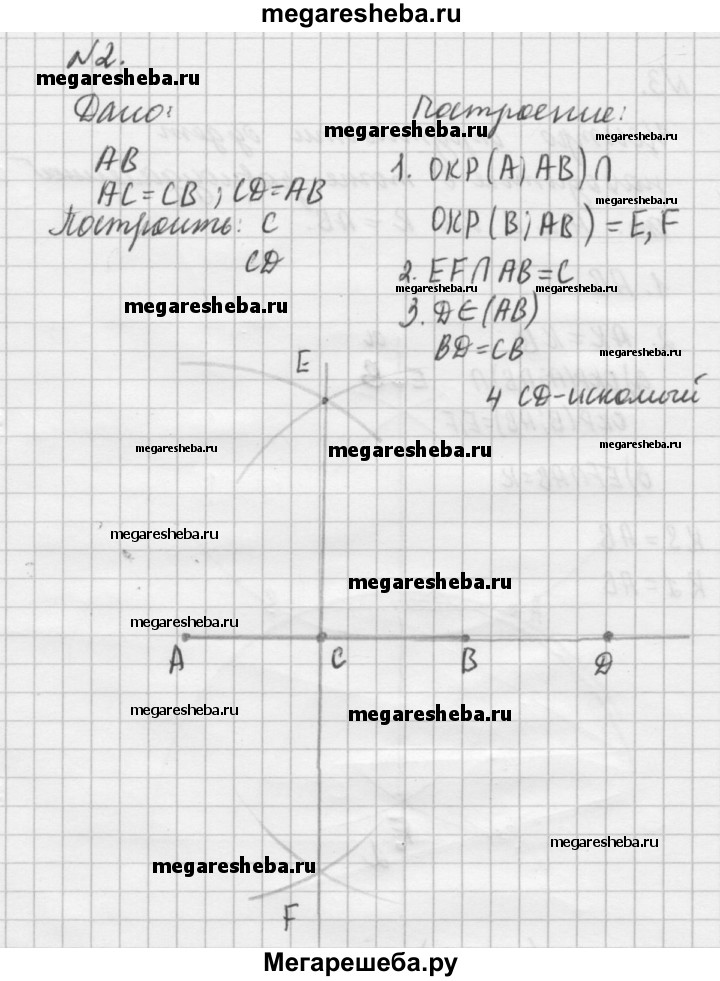 megaresheba.ru
№2.
megaresheba.ru
Дано:
Построение:
megaresheba.ru
megaresheba.ru
AB
1. ОКР(A; AB) ∩
AC = CB ; CD = AB
megaresheba.ru
Построить: C
ОКР(B; AB) = E, F
CD
2. EF ∩ AB = C
megaresheba.ru
megaresheba.ru
megaresheba.ru
3. D ∈ (AB)
BD = CB
megaresheba.ru
E
4 CD - искомый
megaresheba.ru
megaresheba.ru
megaresheba.ru
megaresheba.ru
megaresheba.ru
megaresheba.ru
A C B D
megaresheba.ru
megaresheba.ru
megaresheba.ru
megaresheba.ru
F
Мегарешеба.ру